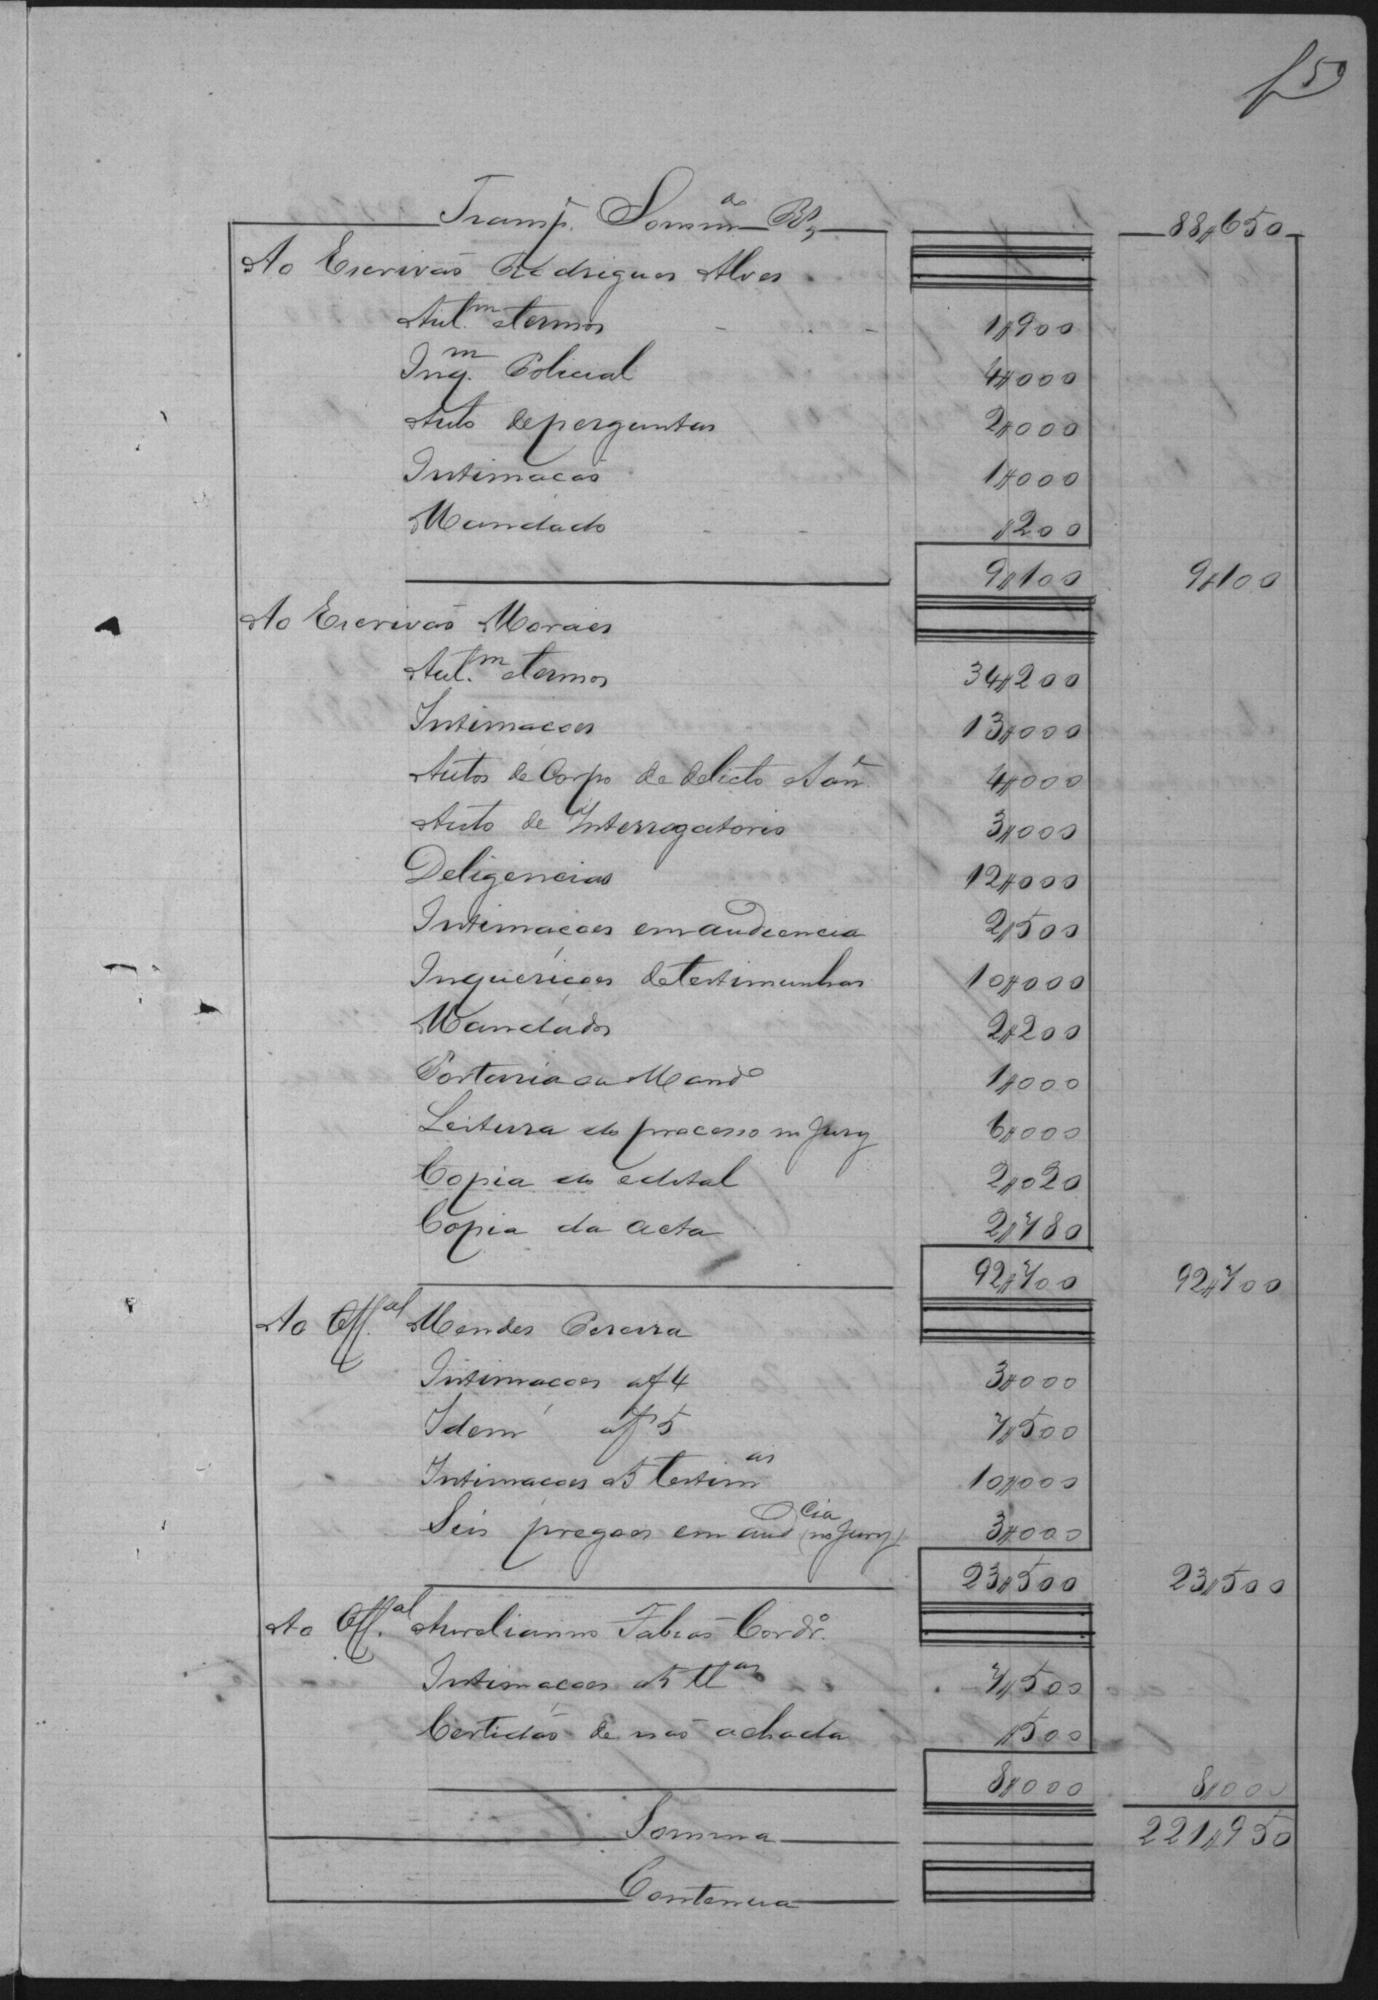 f 59
Transp. Somma Rs 88$650
Ao Escrivaõ Rodrigues Alves
Aut.m e termos 1$900
Inq.m Policial 4$000
Auto de perguntas 2$000
Intimacaõ 1$000
Mandado $200
9$100 9$100
Ao Escrivaõ Moraes
Aut.m e termos 34$200
Intimaçoes 13$000
Autos de Corpo de delicto e San.e 4$000
Auto de Interrogatorio 3$000
Deligencias 12$000
Intimaçoes em audiencia 2$500
Inquericoes de testimunhas 10$000
Mandados 2$200
Portaria ou Mando 1$000
Leitura do processo no Jury 6$000
Copia do edital 2$020
Copia da acta 2$780
92$700 92$700
Ao Off.al Mendes Pereira
Intimaçoes a f 4 3$000
Idem a f 5 7$500
Intimaçoes a 5 testimas 10$000
Seis pregoes em audcia (no Jury) 3$000
23$500 23$500
Ao Off.al Aurelianno Fabiaõ Cordro.
Intimaçoes a 5 ttas 7$500
Certidaõ de naõ achada $500
8$000 8$000
Somma 221$950
Contencia